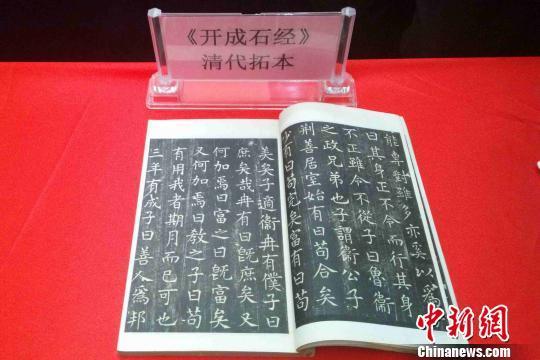 《开成石经》
清代拓本
能專對雖多亦奚以爲
曰其身正不令而行其身
不正雖令不從子曰魯衛
之政兄弟也子謂衛公子
荆善居室始有曰苟合矣
少有曰苟完矣富有曰苟
美矣子適衛冉有僕子曰
庶矣哉冉有曰旣庶矣又
何加焉曰富之曰旣富矣
又何加焉曰教之子曰苟
有用我者期月而已可也
三年有成子曰善人爲邦
中新网
Chinanews.com